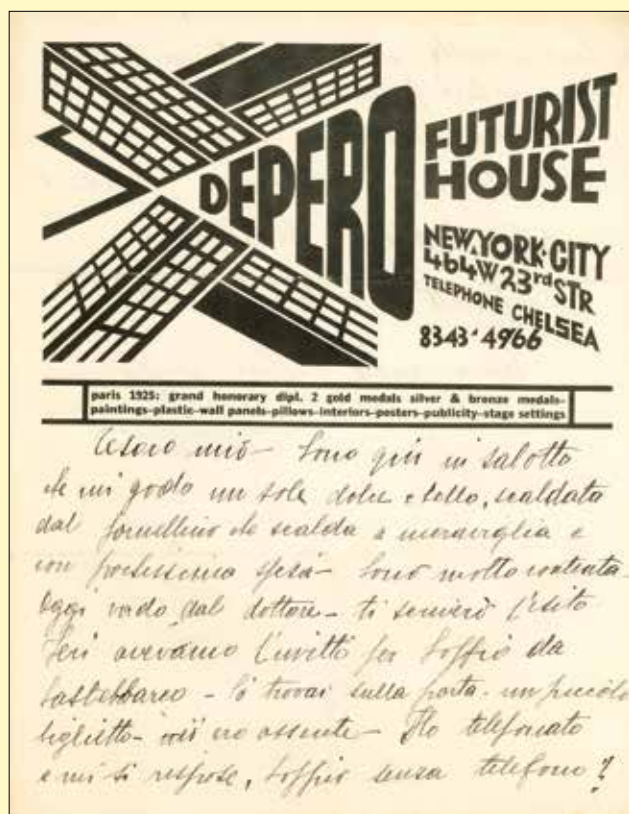 DEPERO
FUTURIST
HOUSE
NEW.YORK-CITY
464W23rd STR
TELEPHONE CHELSEA
8343-4966
paris 1925: grand honorary dipl. 2 gold medals silver & bronze medals-
paintings-plastic-wall panels-pillows-interiors-posters-publicity-stage settings
Tesoro mio - Sono giù in salotto
che mi godo un sole dolce e bello, scaldata
dal fornellino che scalda a meraviglia e
con pochissima spesa - Sono molto contenta.
Oggi vado dal dottore - ti scriverò l'esito
Ieri avevamo l'invito per Soffio da
Castelbarco - lo trovai sulla porta - un piccolo
biglietto - ero assente - Ho telefonato
e mi si rispose, Soffio senza telefono?